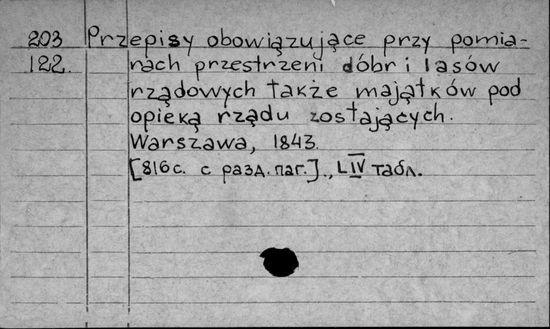 203 Przepisy obowiązujące przy pomia-
122. rach przestrzeni dóbr i lasów
rządowych także majątków pod
opieką rządu zostających.
Warszawa, 1843.
[816 с. с разд. паг.]., LIV табл.